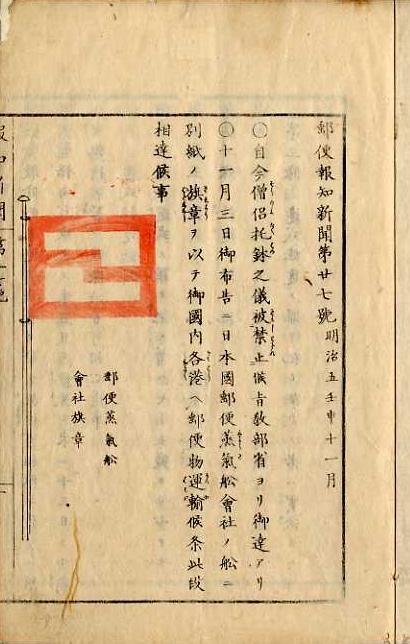 郵便報知新聞第廿七號 明治五壬申十一月
○自今僧侶托鉢之儀被禁止候旨敎部省ヨリ御達アリ
○十一月三日御布告ニ日本國郵便蒸氣舩會社ノ舩ニ
別紙ノ旗章ヲ以テ御國內各港ヘ郵便物運輸候条此段
相達候事
郵便蒸氣舩
會社旗章
報知新聞 第